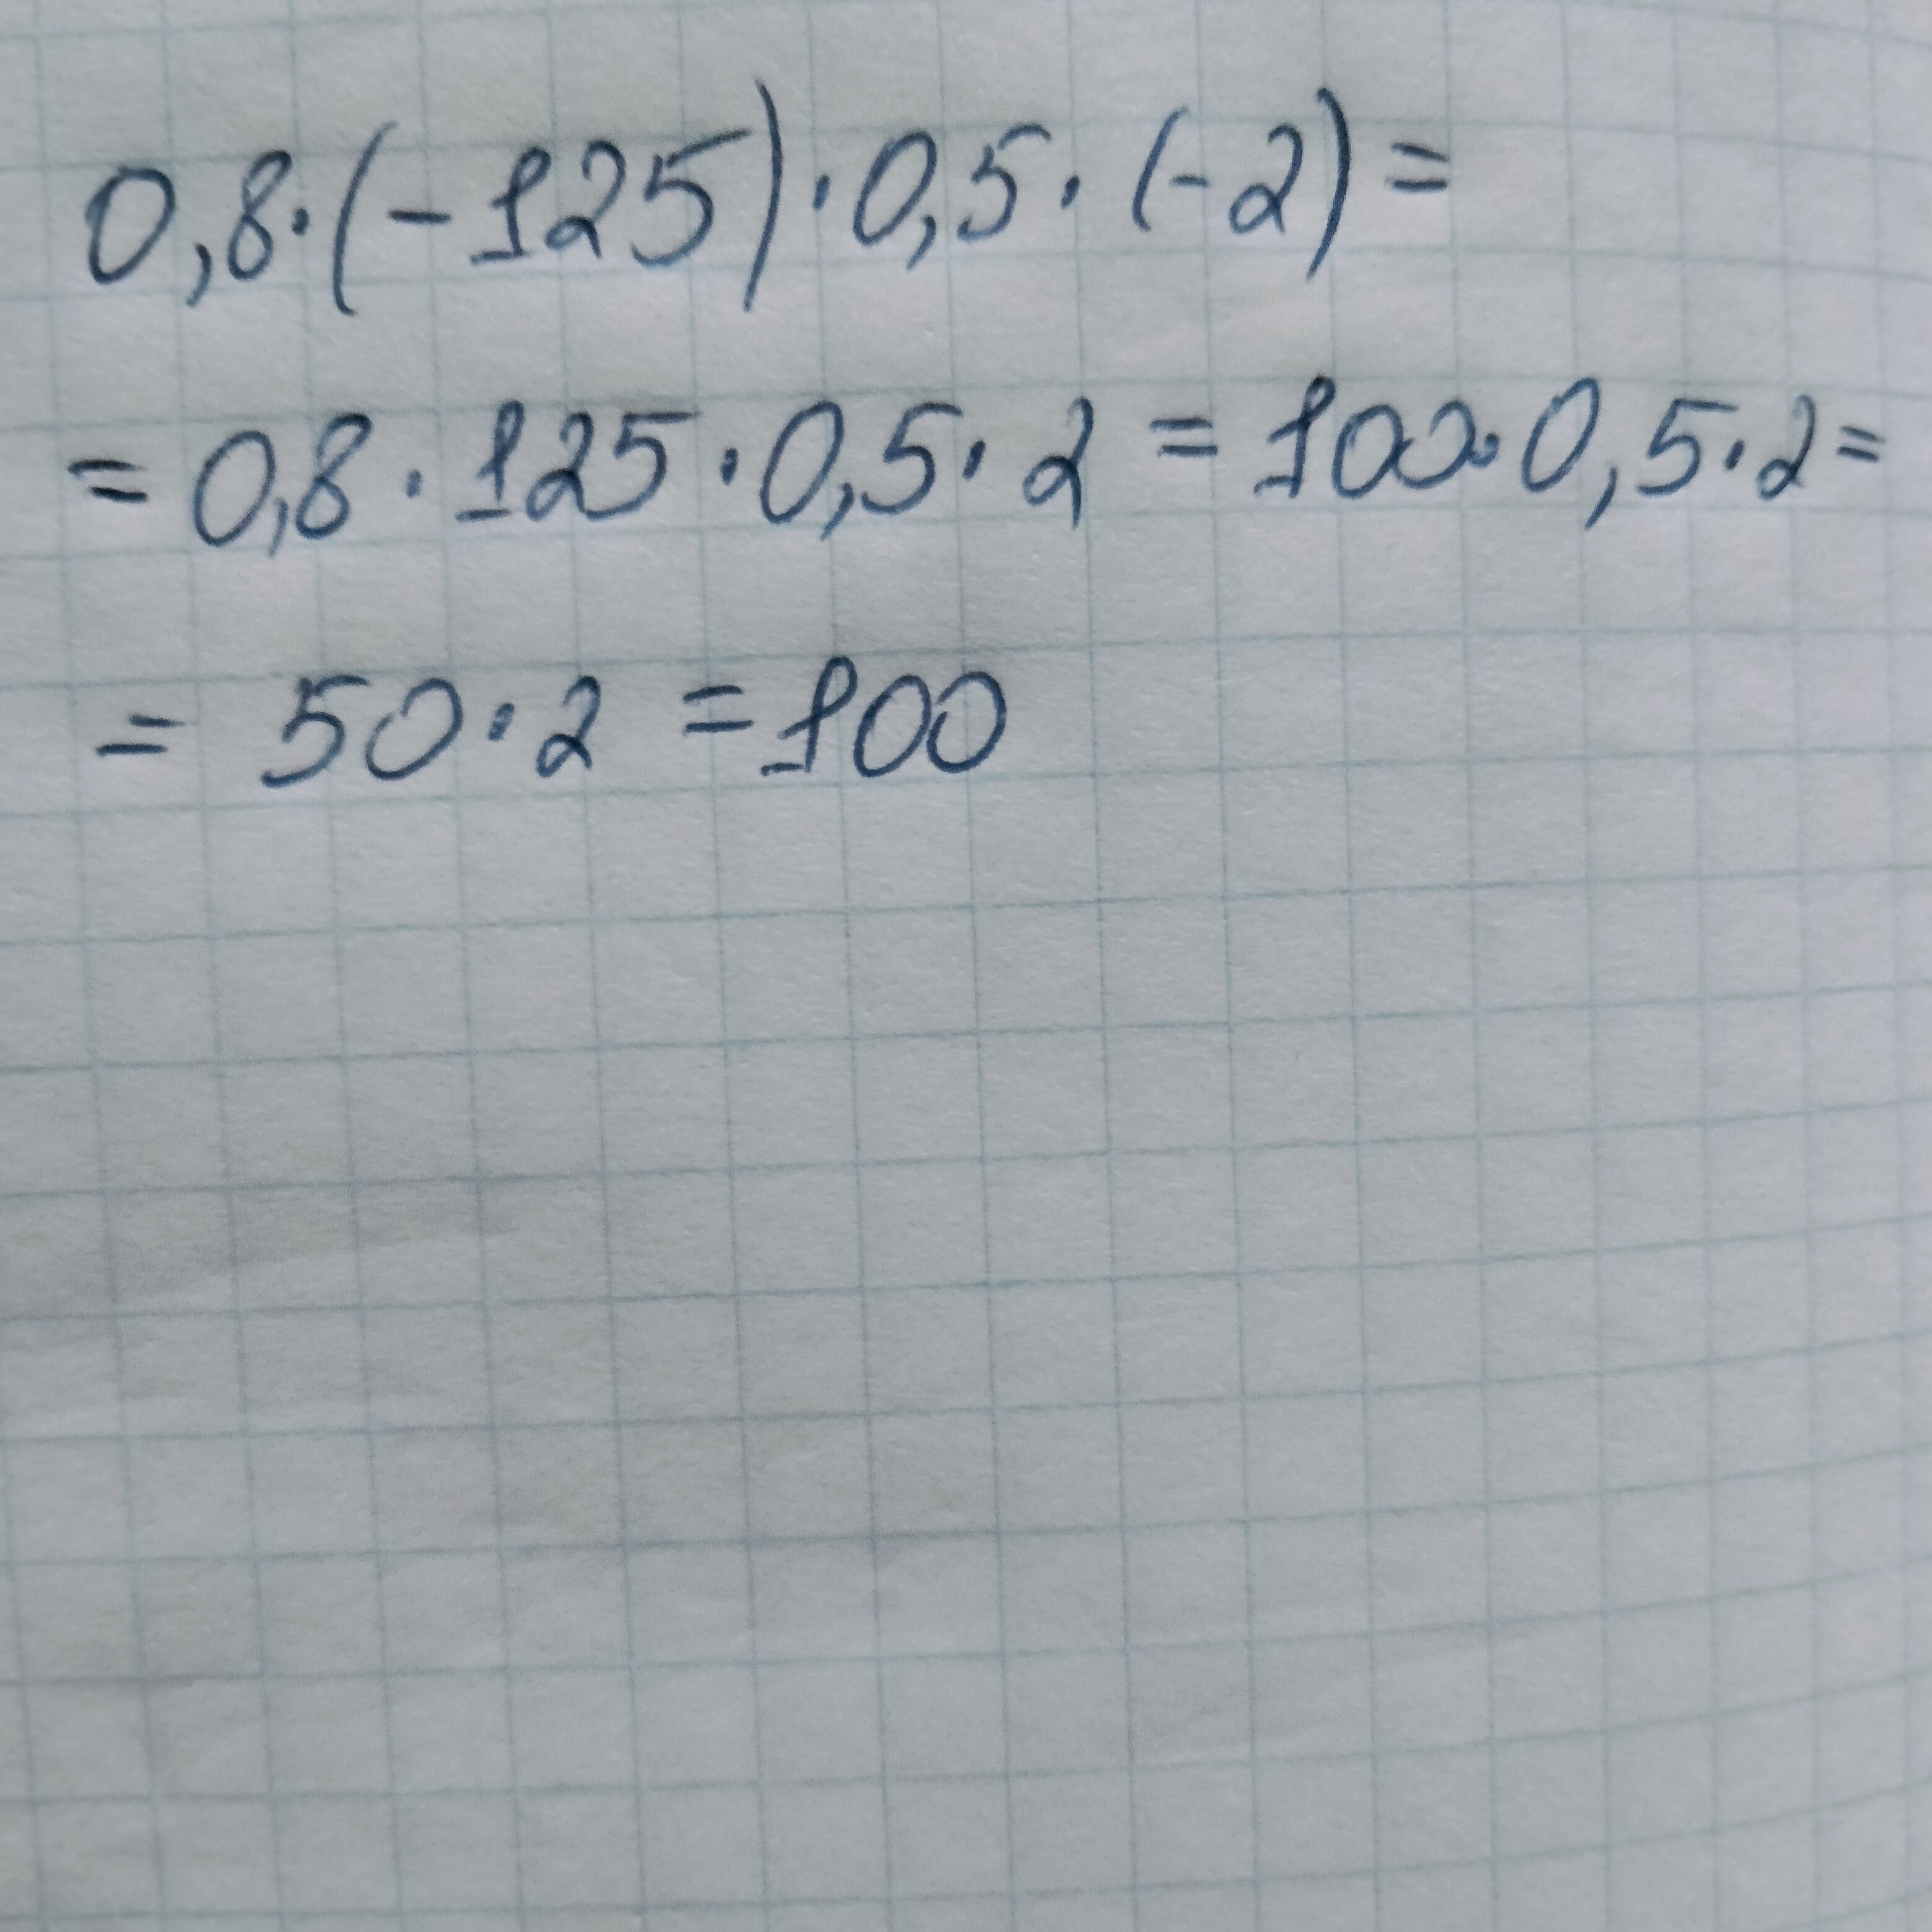 0,8·(-125)·0,5·(-2)=
=0,8·125·0,5·2=100·0,5·2=
=50·2=100